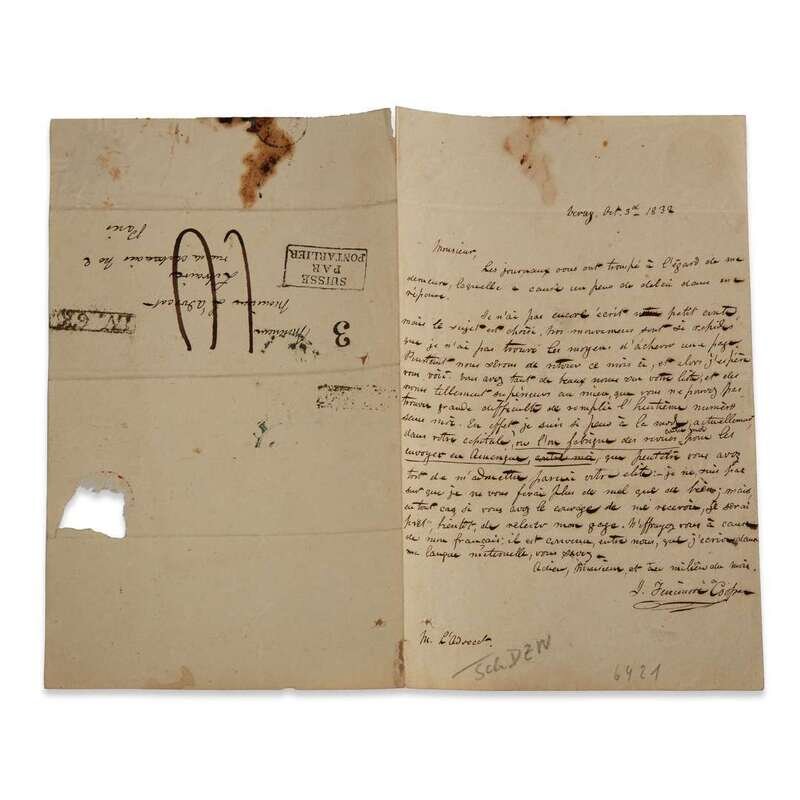 Vevay, Oct. 3rd 1832
Monsieur,
Les journaux vous ont trompé à l'égard de ma
demeure, laquelle a causé un peu de delai dans ma
réponse.
Je n'ai pas encore écrit petit conte,
mais le sujet est choisi. Nos mouvemens sont si rapides
que je n'ai pas trouvé les moyens d'achever une page.
Pourtant nous serons de retour ce mois ci, et alors j'espère
vous voir. Vous avez tant de beaux noms sur votre liste, et des
noms tellement supérieurs au mien, que vous ne pouvez pas
trouver grande difficulté de remplir l'huitième numéro
sans moi. En effet je suis si peu à la mode, actuellement
dans votre capitale, où l'on fabrique des revues pour les
envoyer en Amérique, que peutêtre vous avez
tort de m'admettre parmi votre élite:— je ne suis pas
sur que je ne vous ferai plus de mal que de bien; mais,
en tout cas si vous avez le courage de me recevoir, je serai
prêt, bientôt, de relever mon gage. N'effrayez vous à cause
de mon français; il est convenu, entre nous, que j'écrive dans
ma langue maternelle, vous savez.
Adieu, Monsieur, et au milieu du mois.
J. Fenimore Cooper
M. L'Advocat.
SchDZW
6421
SUISSE
PAR
PONTARLIER
3
Monsieur
Monsieur L'Advocat
Libraire
rue de No 2
Paris